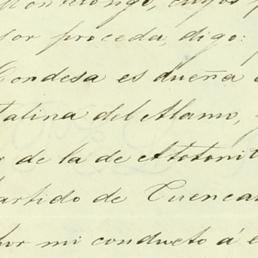 sor proceda, digo:
Condesa es dueña
talina del Alamo,
de la de Atotonil
artido de Cuencam
por mi conducto á e